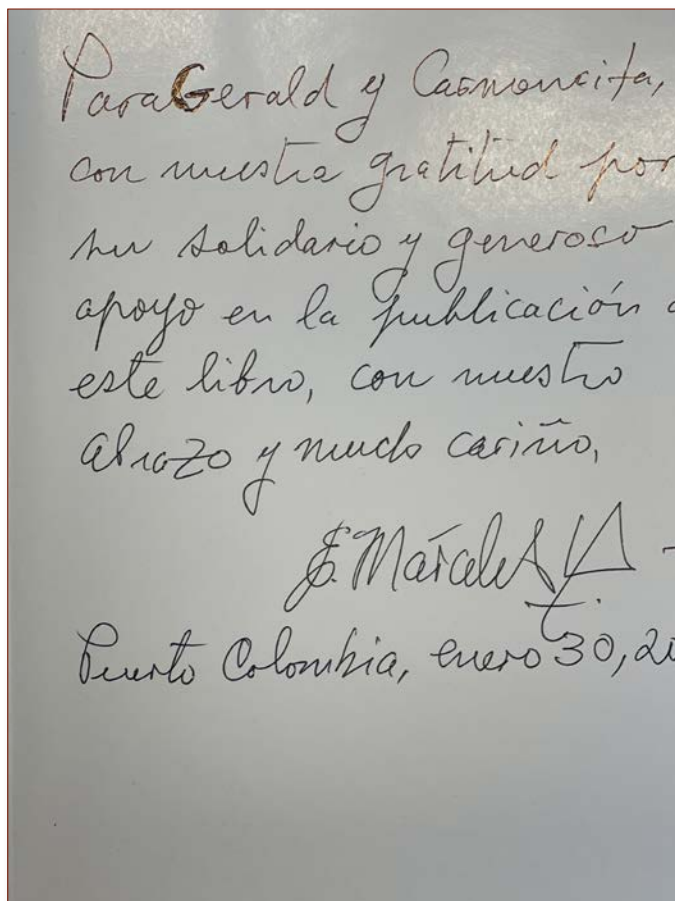 Para Gerald y Carmencita,
con nuestra gratitud por
su solidario y generoso
apoyo en la publicación
este libro, con nuestro
abrazo y mucho cariño,
Puerto Colombia, enero 30, 20